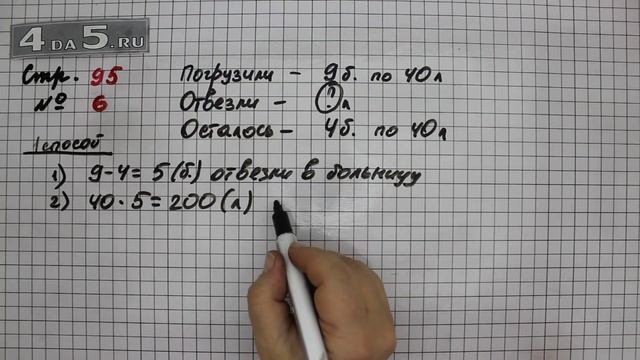 4 DA 5.RU
Стр. 95
№ 6
Погрузили – 9 б. по 40 л
Отвезли – ? л
Осталось – 4 б. по 40 л
1 способ
1) 9-4=5 (б.) отвезли в больницу
2) 40·5=200 (л)